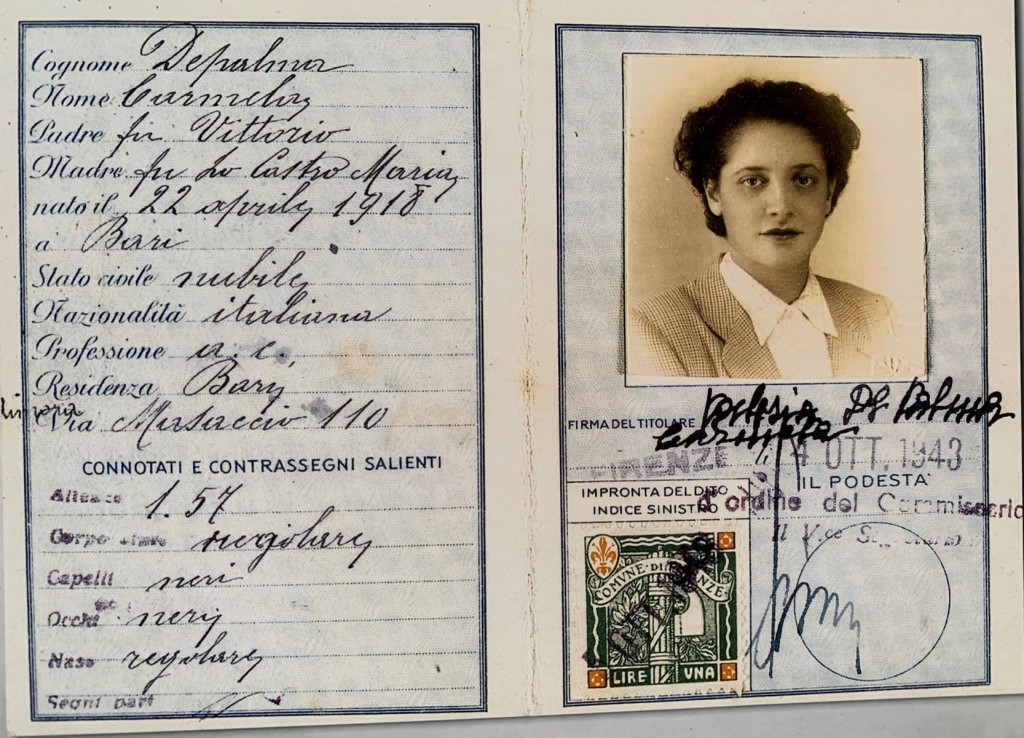 Cognome Depalma
Nome Carmela
Padre fu Vittorio
Madre fu Lo Castro Maria
nato il 22 aprile 1918
a Bari
Stato civile nubile
Nazionalità italiana
Professione a. c.
Residenza Bari
Via Masaccio 110
CONNOTATI E CONTRASSEGNI SALIENTI
Altezza 1.57
Corporatura regolare
Capelli neri
Occhi neri
Naso regolare
Segni part
FIRMA DEL TITOLARE De Palma
FIRENZE, li 4 OTT. 1943
IL PODESTA'
IMPRONTA DEL DITO
INDICE SINISTRO
d'ordine del Commissario
Il Vice Segretario
COMVNE·DI·FIRENZE
LIRE VNA